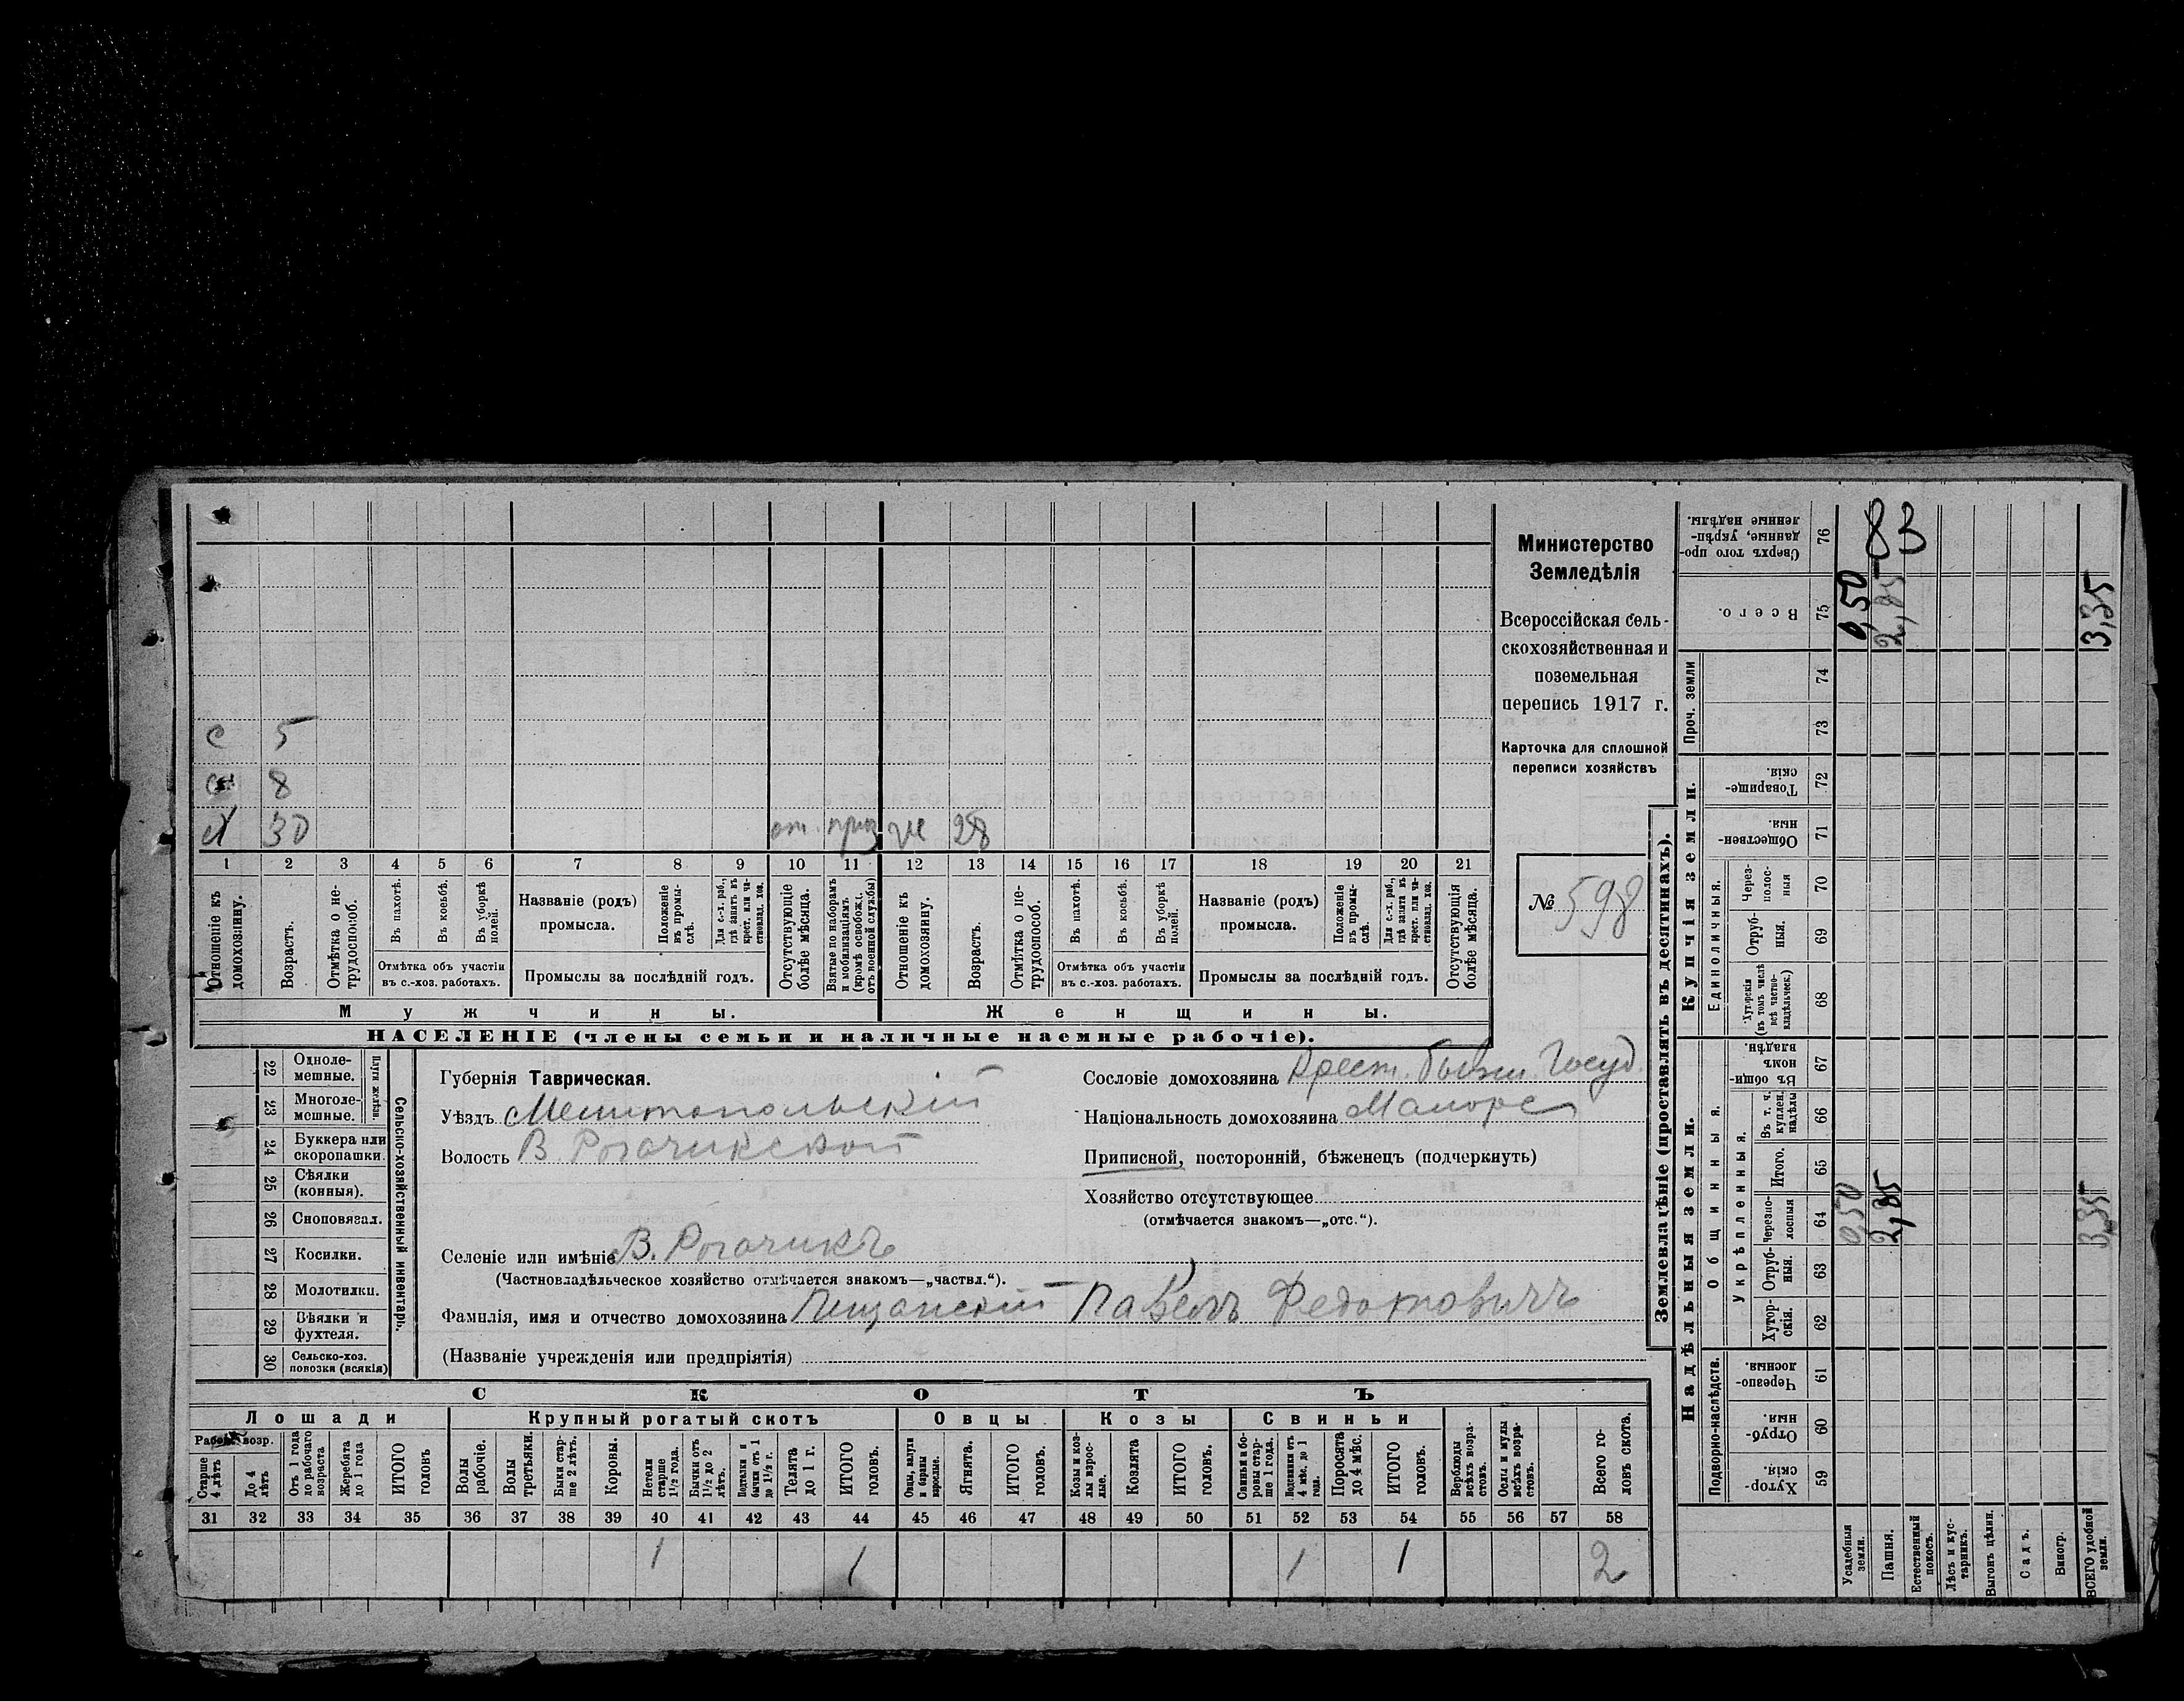 Министерство
Земледѣлія
Всероссійская сель-
скохозяйственная и
поземельная
перепись 1917 г.
Карточка для сплошной
переписи хозяйствъ
№ 598
с 5
с 8
х 30 от. приз же 28
1 2 3 4 5 6 7 8 9 10 11 12 13 14 15 16 17 18 19 20 21
Отношеніе къ домохозяину.
Возрастъ.
Отмѣтка о не-трудоспособ.
Въ пахотѣ.
Въ косьбѣ.
Въ уборкѣ полей.
Отмѣтка объ участіи
въ с.-хоз. работахъ.
Названіе (родъ)
промысла.
Положеніе въ промы-слѣ.
Для с.-х. раб., гдѣ занятъ въ крест. или ча-стновлад. хоз.
Промыслы за послѣдній годъ.
Отсутствующіе болѣе мѣсяца.
Взятые по наборамъ и мобилизаціямъ (кромѣ освобожд. отъ военной службы)
Отношеніе къ домохозяину.
Возрастъ.
Отмѣтка о не-трудоспособ.
Въ пахотѣ.
Въ косьбѣ.
Въ уборкѣ полей.
Отмѣтка объ участіи
въ с.-хоз. работахъ.
Названіе (родъ)
промысла.
Положеніе въ промы-слѣ.
Для с.-х. раб., гдѣ занята въ крест. или ча-стновлад. хоз.
Промыслы за послѣдній годъ.
Отсутствующія болѣе мѣсяца.
Мужчины. Женщины.
НАСЕЛЕНІЕ (члены семьи и наличные наемные рабочіе).
Сельско-хозяйственный инвентарь.
Плуги желѣзн.
22 Одноле-мешные.
23 Многоле-мешные.
24 Буккера или скоропашки.
25 Сѣялки (конныя).
26 Сноповязал.
27 Косилки.
28 Молотилки.
29 Вѣялки и фухтеля.
30 Сельско-хоз. повозки (всякія)
Губернія Таврическая.
Уѣздъ Мелитопольскій
Волость В. Рогачикской
Селеніе или имѣніе В. Рогачикъ
(Частновладѣльческое хозяйство отмѣчается знакомъ—„частвл.“).
Фамилія, имя и отчество домохозяина Пищанскій Павелъ Федотовичъ
(Названіе учрежденія или предпріятія)
Сословіе домохозяина Крест. бывш. Госуд.
Національность домохозяина Малорос
Приписной, посторонній, бѣженецъ (подчеркнуть)
Хозяйство отсутствующее
(отмѣчается знакомъ—„отс.“).
СКОТЪ
Лошади
Рабоч. возр.
Старше 4 лѣтъ
До 4 лѣтъ
Отъ 1 года до рабочаго возраста
Жеребята до 1 года
ИТОГО головъ
Крупный рогатый скотъ
Волы рабочіе.
Волы третьяки.
Быки стар-ше 2 лѣтъ.
Коровы.
Нетели старше 1½ года.
Бычки отъ 1½ до 2 лѣтъ.
Телята до 1 г.
ИТОГО головъ.
Овцы
Овцы, валухи и бараны взрослые.
Ягнята.
ИТОГО головъ.
Козы
Козы и коз-лы взрос-лые.
Козлята
ИТОГО головъ.
Свиньи
Свиньи и бо-ровы стар-ше 1 года.
Подсвинки отъ 4 мѣс. до 1 года.
Поросята до 4 мѣс.
ИТОГО головъ.
Верблюды всѣхъ возра-стовъ.
Ослы и мулы всѣхъ возра-стовъ.
Всего го-ловъ скота.
31 32 33 34 35 36 37 38 39 40 41 42 43 44 45 46 47 48 49 50 51 52 53 54 55 56 57 58
1 1 1 1 2
Землевладѣніе (проставлять въ десятинахъ).
Надѣльныя земли.
Подворно-наслѣдств.
Хутор-скія. 59
Отруб-ныя. 60
Черезпо-лосныя 61
Общинныя.
Укрѣпленныя.
Хутор-скія. 62
Отруб-ныя. 63
Черезпо-лосныя 64
Итого. 65
Въ т. ч. куплен. надѣлы 66
Въ общин-номъ владѣн. 67
Купчія земли.
Единоличныя.
Хуторскія (въ томъ числѣ всѣ частно-владѣльческ.) 68
Отруб-ныя. 69
Через-полос-ныя 70
Обществен-ныя. 71
Товарище-скія. 72
Проч. земли
73
74
Всего. 75
Сверхъ того про-данные, укрѣп-ленные надѣлы. 76
Усадебныя земли. 0,50 0,50
Пашня. 2,85 2,85 83
Естественный покосъ.
Лѣсъ и кус-тарникъ.
Выгонъ цѣлин.
Садъ.
Виногр.
ВСЕГО удобной земли. 3,35 3,35